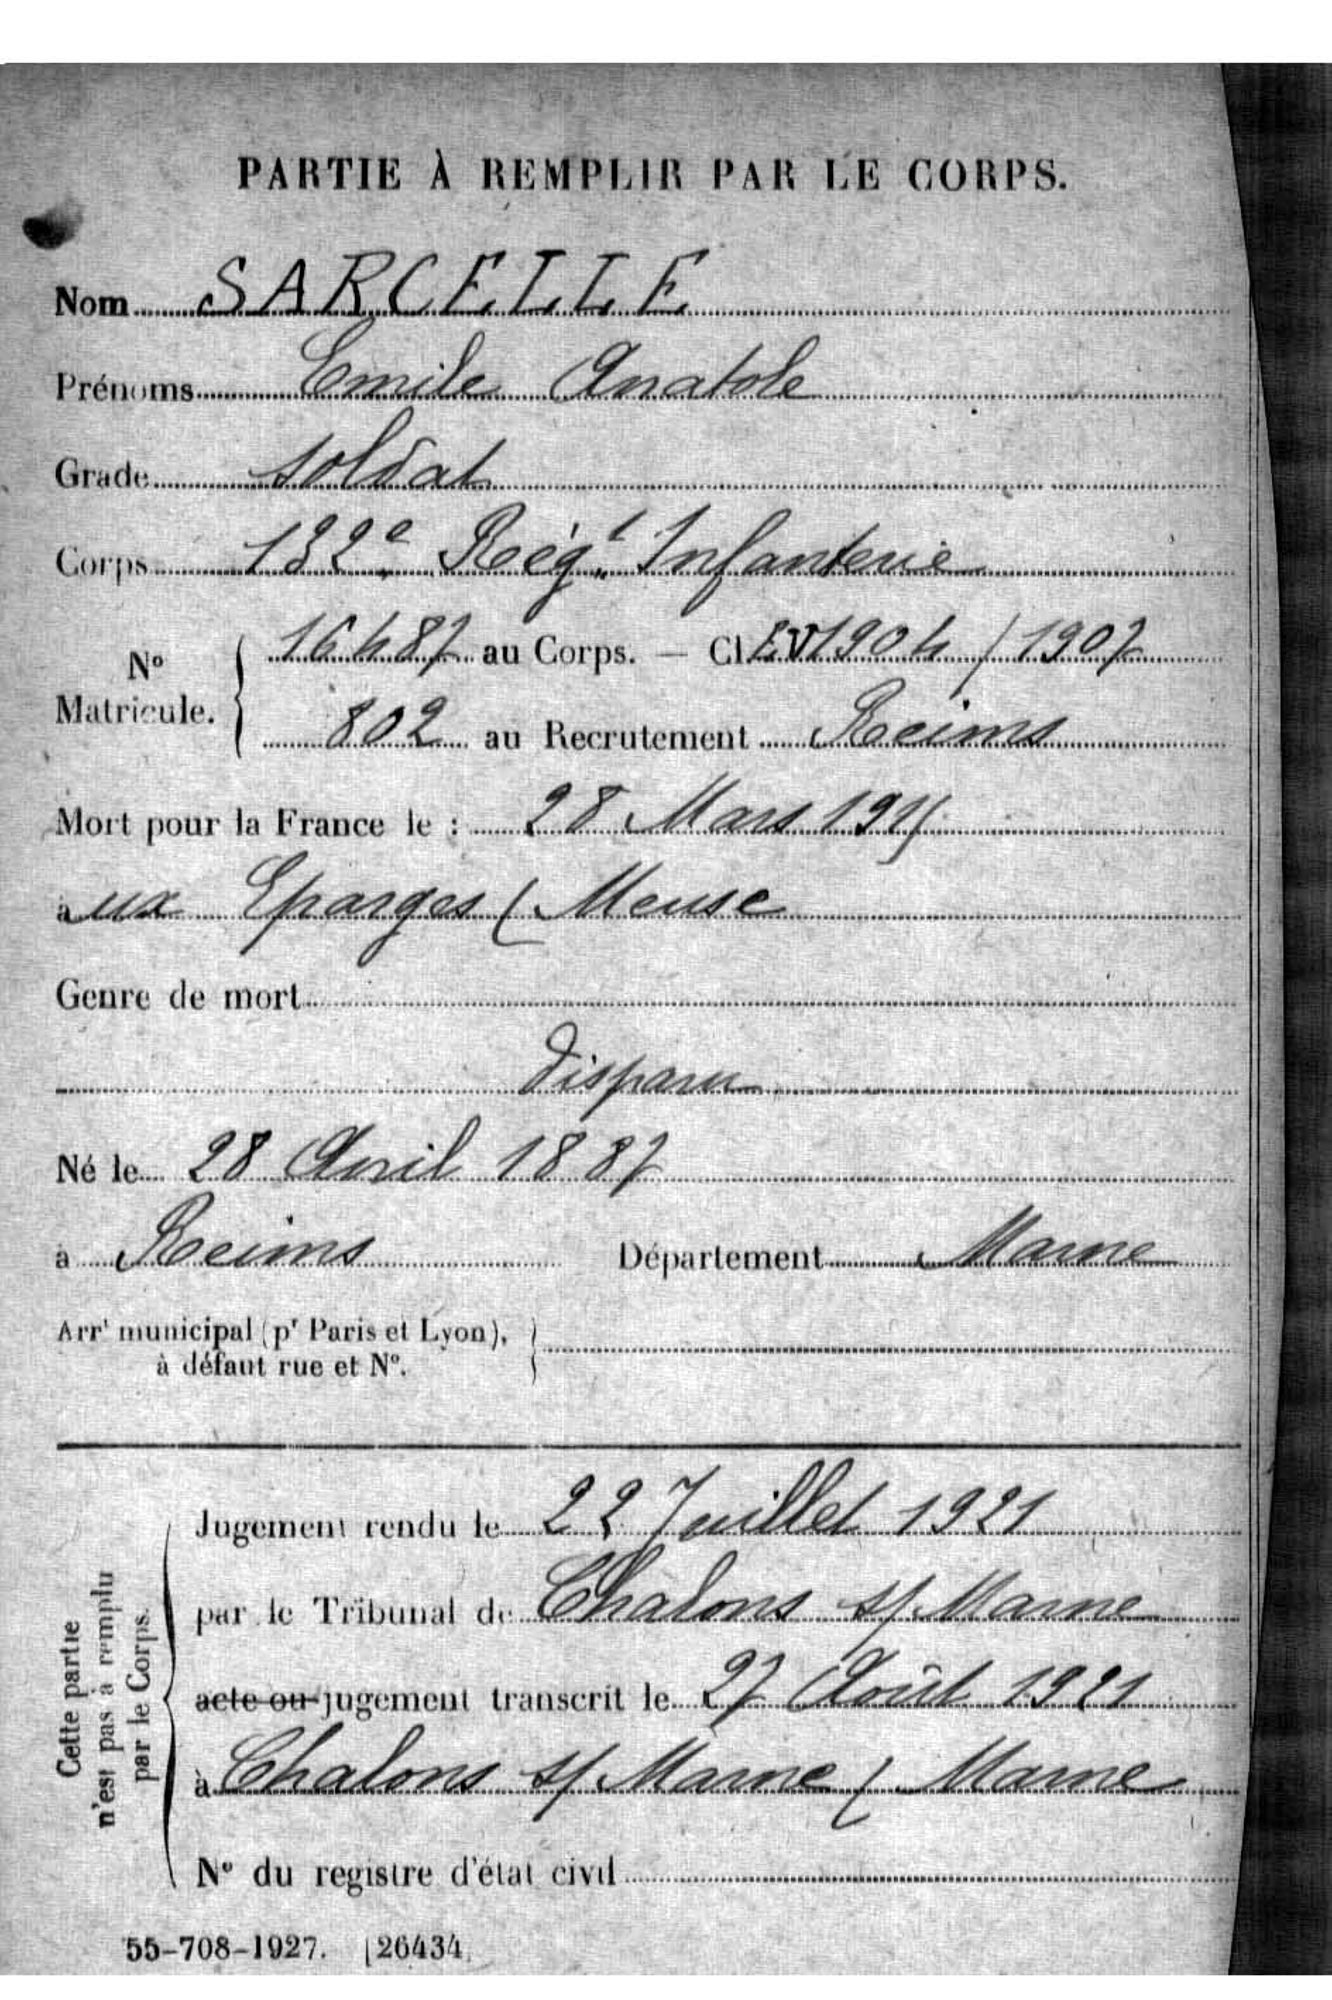 PARTIE À REMPLIR PAR LE CORPS.
Nom SARCELLE
Prénoms Emile Anatole
Grade soldat
Corps 132e Régt Infanterie
No Matricule. { 16487 au Corps. — Cl EV 1904 / 1907
802 au Recrutement Reims
Mort pour la France le : 28 Mars 1915
aux Eparges ( Meuse
Genre de mort
disparu
Né le 28 Avril 1887
à Reims Département Marne
Arrt municipal (pr Paris et Lyon),
à défaut rue et No.
Cette partie
n'est pas à remplir
par le Corps.
Jugement rendu le 22 Juillet 1921
par le Tribunal de Chalons s/ Marne
acte ou jugement transcrit le 27 Août 1921
à Chalons s/ Marne ( Marne
No du registre d'état civil
55-708-1927. [26434.